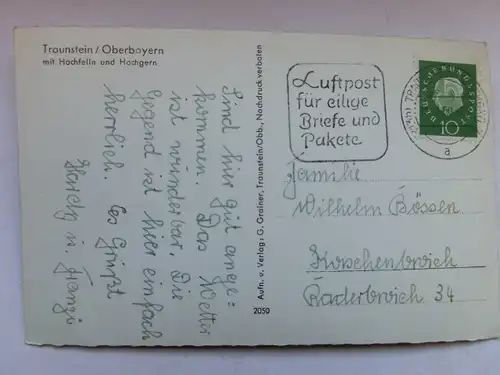 Traunstein / Oberbayern
mit Hochfelln und Hochgern
Sind hier gut ange:
kommen. Das Wetter
ist wunderbar. Die
Gegend ist hier einfach
herrlich. Es Grüßt
Hardy u.
Aufn. u. Verlag: G. Grainer, Traunstein/Obb., Nachdruck verboten
2050
Luftpost
für eilige
Briefe und
Pakete
DEUTSCHE BUNDESPOST
10
a
Familie
Wilhelm Bössen
Korschenbroich
Raderbroich 34